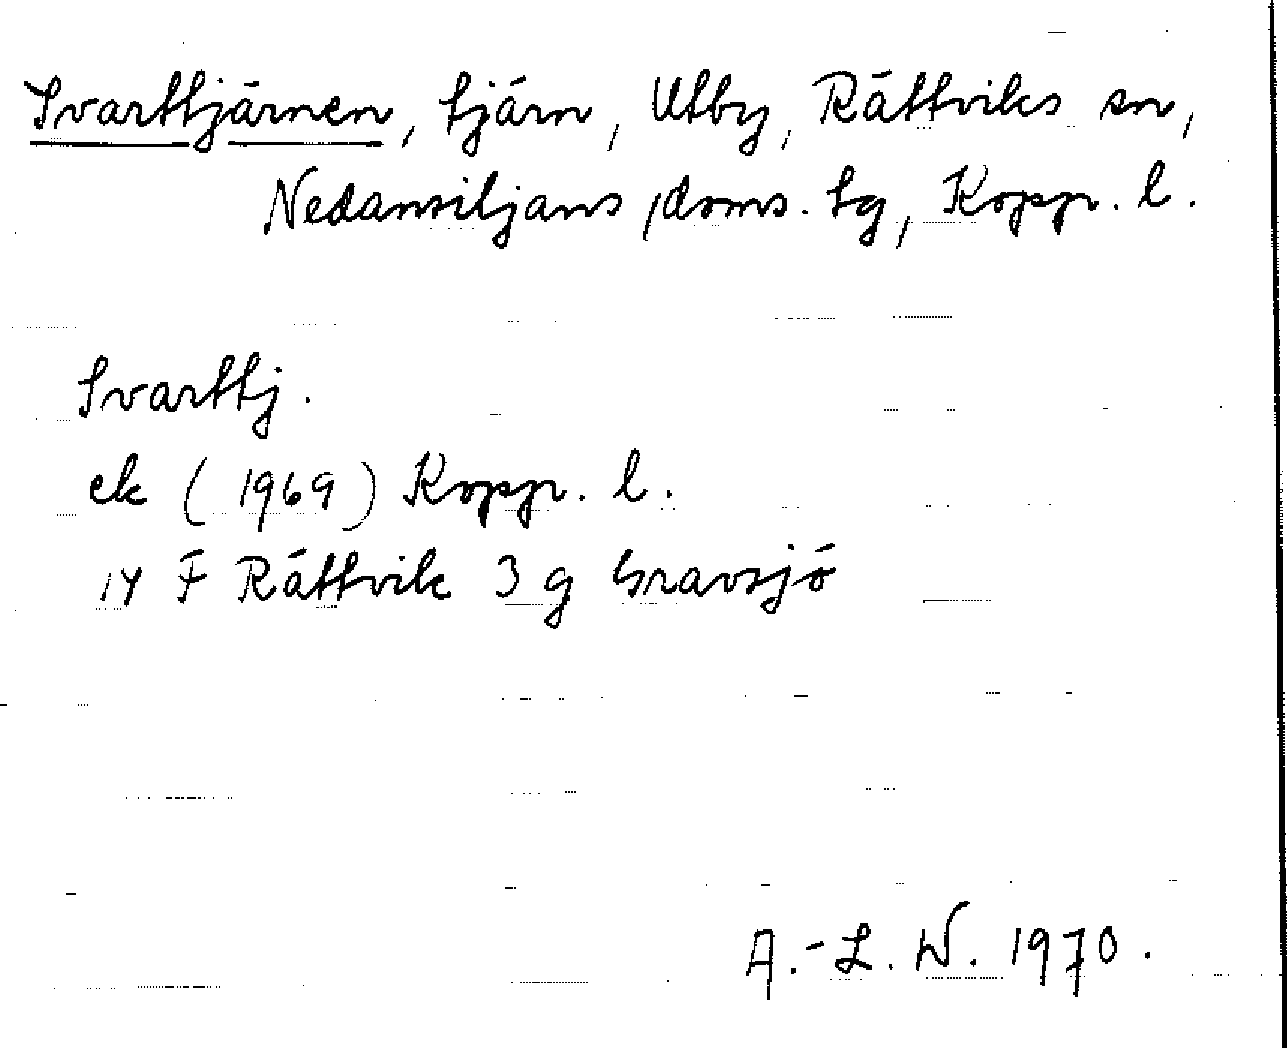 Svarttjärnen, tjärn, Utby, Rättviks sn,
Nedansiljans doms. tg, Koppr. l.
Svarttj.
ek (1969) Koppr. l.
14 F Rättvik 3 g Gravsjö
A.-L. W. 1970.